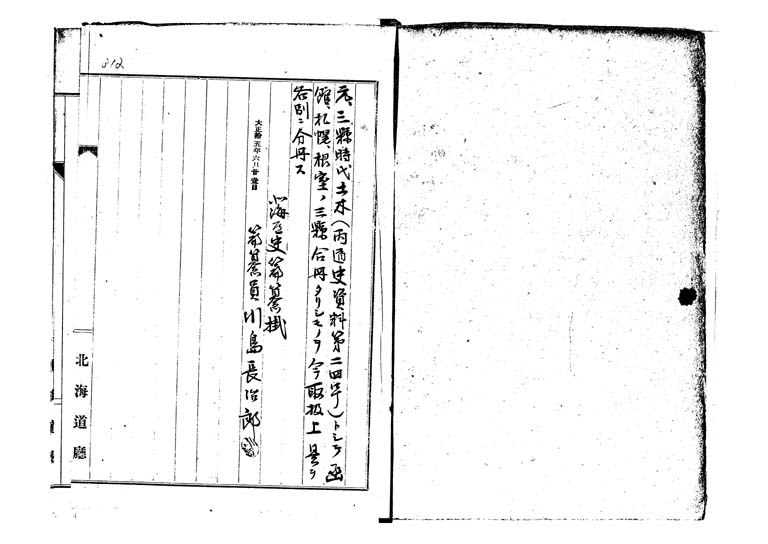 312
元、三縣時代土木（丙道史資料第二四号）トシテ函
館、札幌、根室ノ三縣合冊タリシモノヲ今取扱上是ヲ
各別ニ分冊ス
大正拾五年六月廿壹日
北海道史編纂掛
編纂員川島長治郎
北海道廳